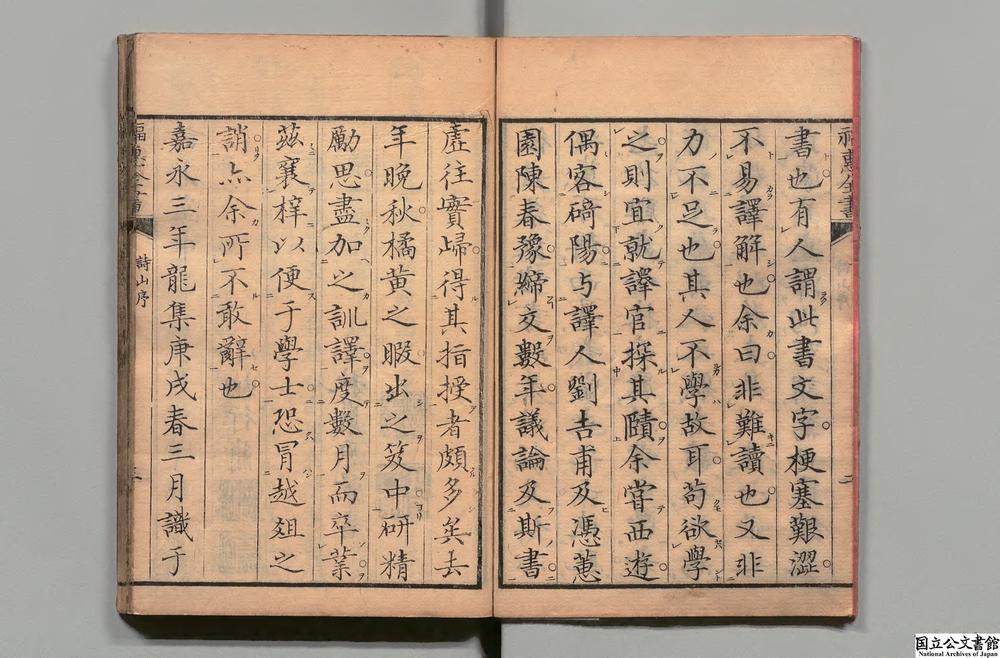 書也有人謂此書文字梗塞艱澀
不易譯解也余曰非難讀也又非
力不足也其人不學故耳苟欲學
之則宜就譯官探其賾余嘗西遊
偶客碕陽与譯人劉吉甫及馮蕙
園陳春豫締交數年議論及斯書
虛往實歸得其指授者頗多矣去
年晚秋橘黃之暇出之笈中研精
勵思盡加之訓譯度數月而卒業
茲襄梓以便于學士恐冒越爼之
誚亦余所不敢辭也
嘉永三年龍集庚戌春三月識于
福惠全書
詩山序
国立公文書館
National Archives of Japan